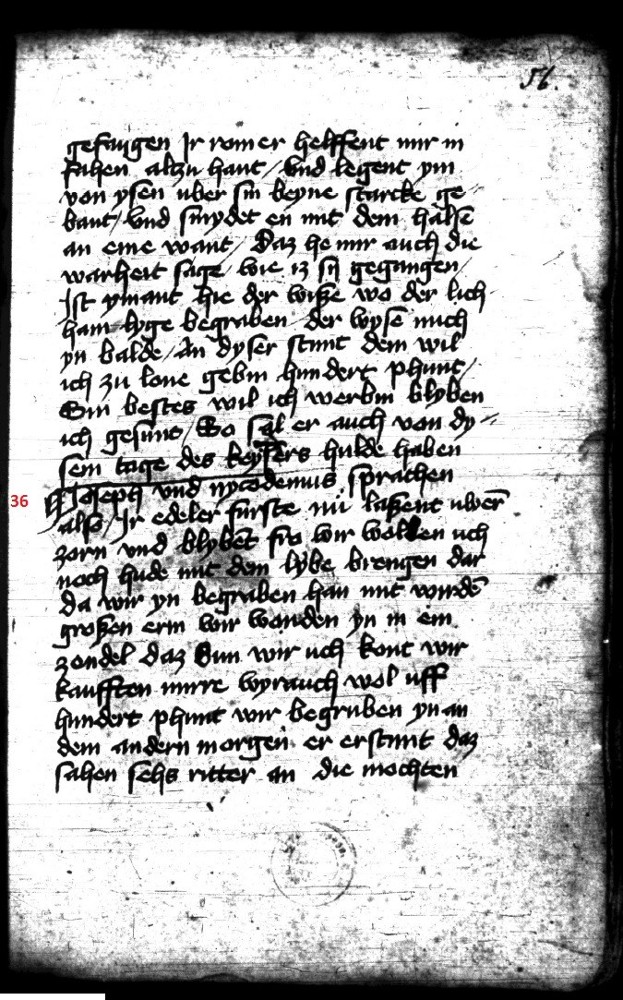 56.
gefangen Ir romer helffent mir in
fahen alzu hant / vnd legent ym
von ysen vber sin beyne starcke ge
bant / vnd smydet en mit dem halse
an eine want / Daz he mir auch die
warheit sage / wie iz sij gegangen /
Ist ymant hie der wisse wo der lich
ham lyge begraben der wyse mich
yn balde / An dyser stunt dem wil
ich zu lone gebin hundert phunt /
Sin bestes wil ich werbin blyben
ich gesunt / So sal er auch von dy
sem tage des keysers hulde haben
36 Joseph vnd nycodemus sprachen
also / Ir edeler furste nu laßent uwer
zorn vnd blybet fro wir wollen uch
noch hude mit dem lybe brengen dar
da wir yn begraben han mit wurden
großen erin wir wonden yn in ein
zendel daz Sun wir uch kont wir
kaufften mirre wyrauch wol uff
hundert phunt wir begruben yn an
dem andern morgen er erstunt daz
sahen sehs ritter an die mochten